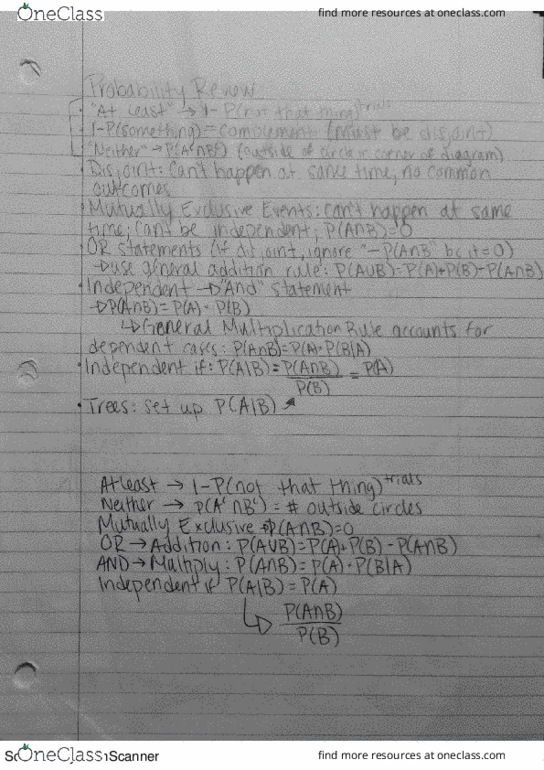 OneClass
find more resources at oneclass.com
Probability Review
• "At least" → 1-P(not that thing)^trials
• 1-P(something) = complement (must be disjoint)
• "Neither" → P(Aᶜ∩Bᶜ) (outside of circle in corner of diagram)
• Disjoint: can't happen at same time, no common
outcomes
• Mutually Exclusive Events: can't happen at same
time, can't be independent, P(A∩B)=0
• OR statements (if disjoint, ignore "-P(A∩B" bc it=0)
→use general addition rule: P(A∪B)=P(A)+P(B)-P(A∩B)
• Independent → "And" statement
→P(A∩B)=P(A)·P(B)
↳General Multiplication Rule accounts for
dependent cases: P(A∩B)=P(A)·P(B|A)
• Independent if: P(A|B)=P(A∩B)/P(B) = P(A)
• Trees: set up P(A|B)
At least → 1-P(not that thing)^trials
Neither → P(Aᶜ∩Bᶜ) = # outside circles
Mutually Exclusive → P(A∩B)=0
OR → Addition: P(A∪B)=P(A)+P(B)-P(A∩B)
AND → Multiply: P(A∩B)=P(A)·P(B|A)
Independent if P(A|B)=P(A)
↳ P(A∩B)
P(B)
OneClass
Scanner
find more resources at oneclass.com